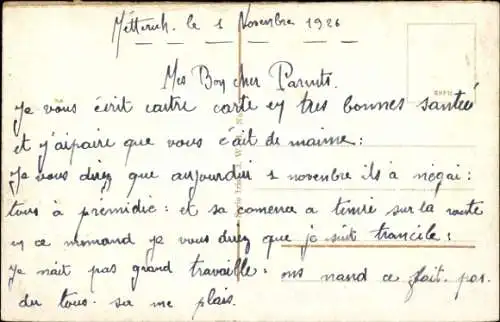 Métterich. le 1 Novembre 1926
Mes Bon cher Parents.
Je vous écrit cartre carte en tres bonnes santée
et j'aipaire que vous c'ait de maime:
Je vous direz que aujourdiu 1 novembre ils à négai:
tous à prémidic: et sa comence a tenire sur la route
en ce momand je vous direz que je suit trancile:
Je nait pas grand travaille: ons nand ce fait. pas.
du tous. sa me plais.